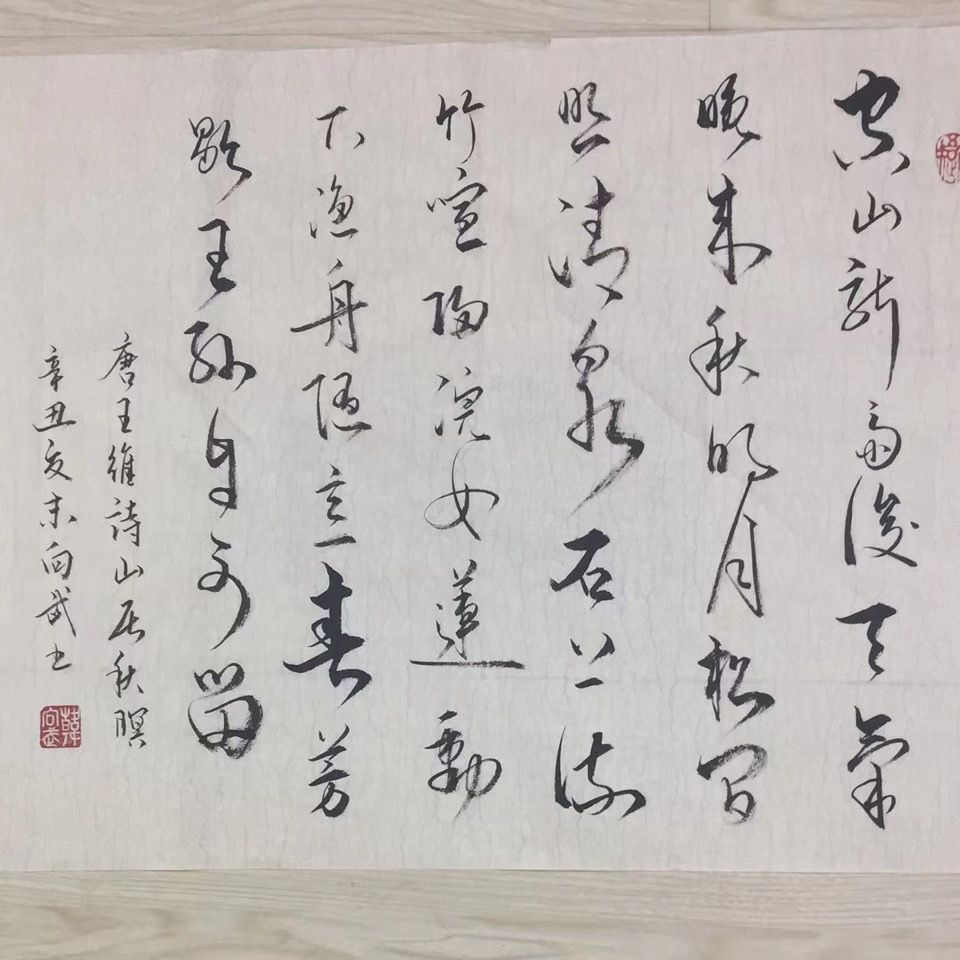 空山新雨後天氣
晚来秋明月松间
照清泉石上流
竹喧归浣女蓮動
下渔舟随意春芳
歇王孙自可留
唐王維詩山居秋暝
辛丑夏末向武书
韓向武